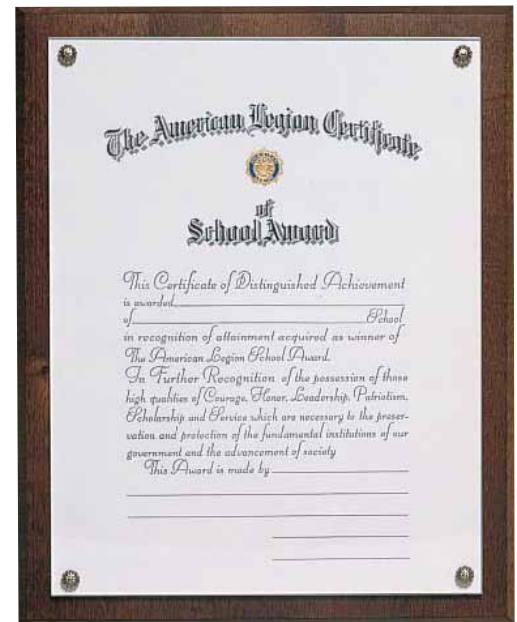 The American Legion Certificate
of
School Award
This Certificate of Distinguished Achievement
is awarded
of School
in recognition of attainment acquired as winner of
The American Legion School Award.
In Further Recognition of the possession of those
high qualities of Courage, Honor, Leadership, Patriotism,
Scholarship and Service which are necessary to the preser-
vation and protection of the fundamental institutions of our
government and the advancement of society
This Award is made by